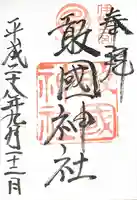 奉拝
敢國神社
平成二十八年九月十二日